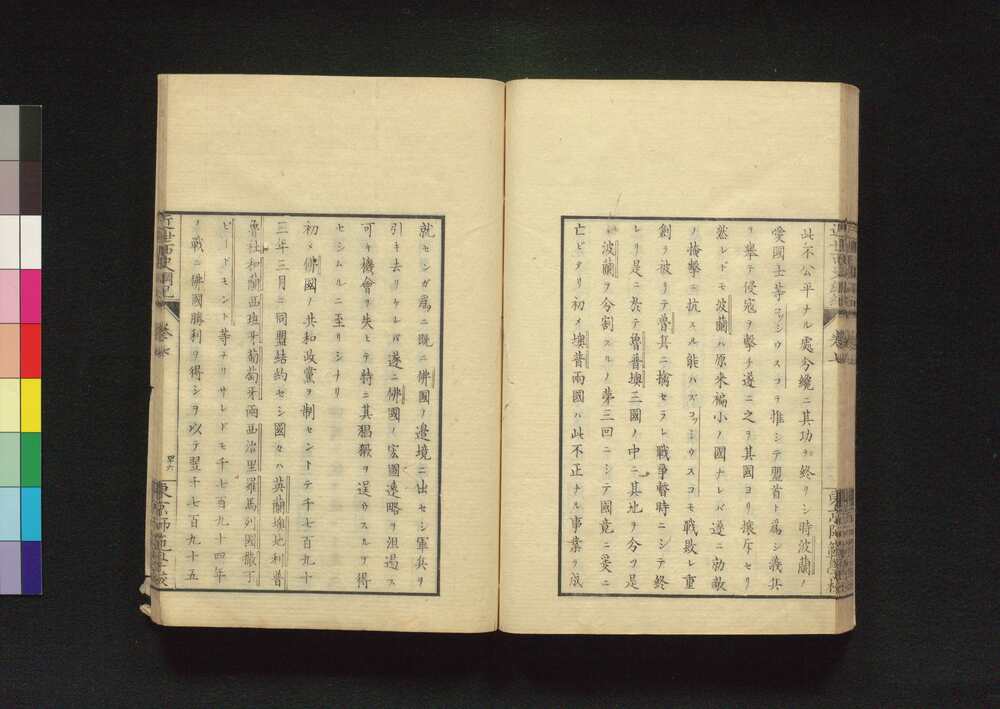 此不公平ナル處分纔ニ其功ヲ終リシ時波蘭ノ
愛國士等コッシウスコヲ推シテ盟首ト爲シ義兵
ヲ擧テ侵寇ヲ擊チ遂ニ之ヲ其國ヨリ攘斥セリ
然レドモ波蘭ハ原来褊小ノ國ナレバ遂ニ勍敵
ノ掩擊ニ抗スル能ハズコッシウスコモ戰敗レ重
創ヲ被リテ魯兵ニ擒セラレ戰爭暫時ニシテ終
レリ是ニ於テ魯普墺三國ノ中ニ其地ヲ分ツ是
波蘭ヲ分割スルノ第三回ニシテ國竟ニ爰ニ
亡ビタリ初メ墺普兩國ハ此不正ナル事業ヲ成
就センガ爲ニ既ニ佛國ノ邊境ニ出セシ軍兵ヲ
引キ去リケレバ遂ニ佛國ノ宏圖遠略ヲ沮遏ス
可キ機會ヲ失ヒテ特ニ其猖獗ヲ逞ウスルヲ得
セシムルニ至リシナリ
初メ佛國ノ共和政黨ヲ制セントテ千七百九十
三年三月ニ同盟結約セシ國々ハ英蘭墺地利普
魯社和蘭西班牙葡萄牙兩西治里羅馬列國撒丁
ピードモント等ナリサレドモ千七百九十四年
ノ戰ニ佛國勝利ヲ得シヲ以テ翌千七百九十五
近世西史綱紀
卷七
四十六
東京師範學校